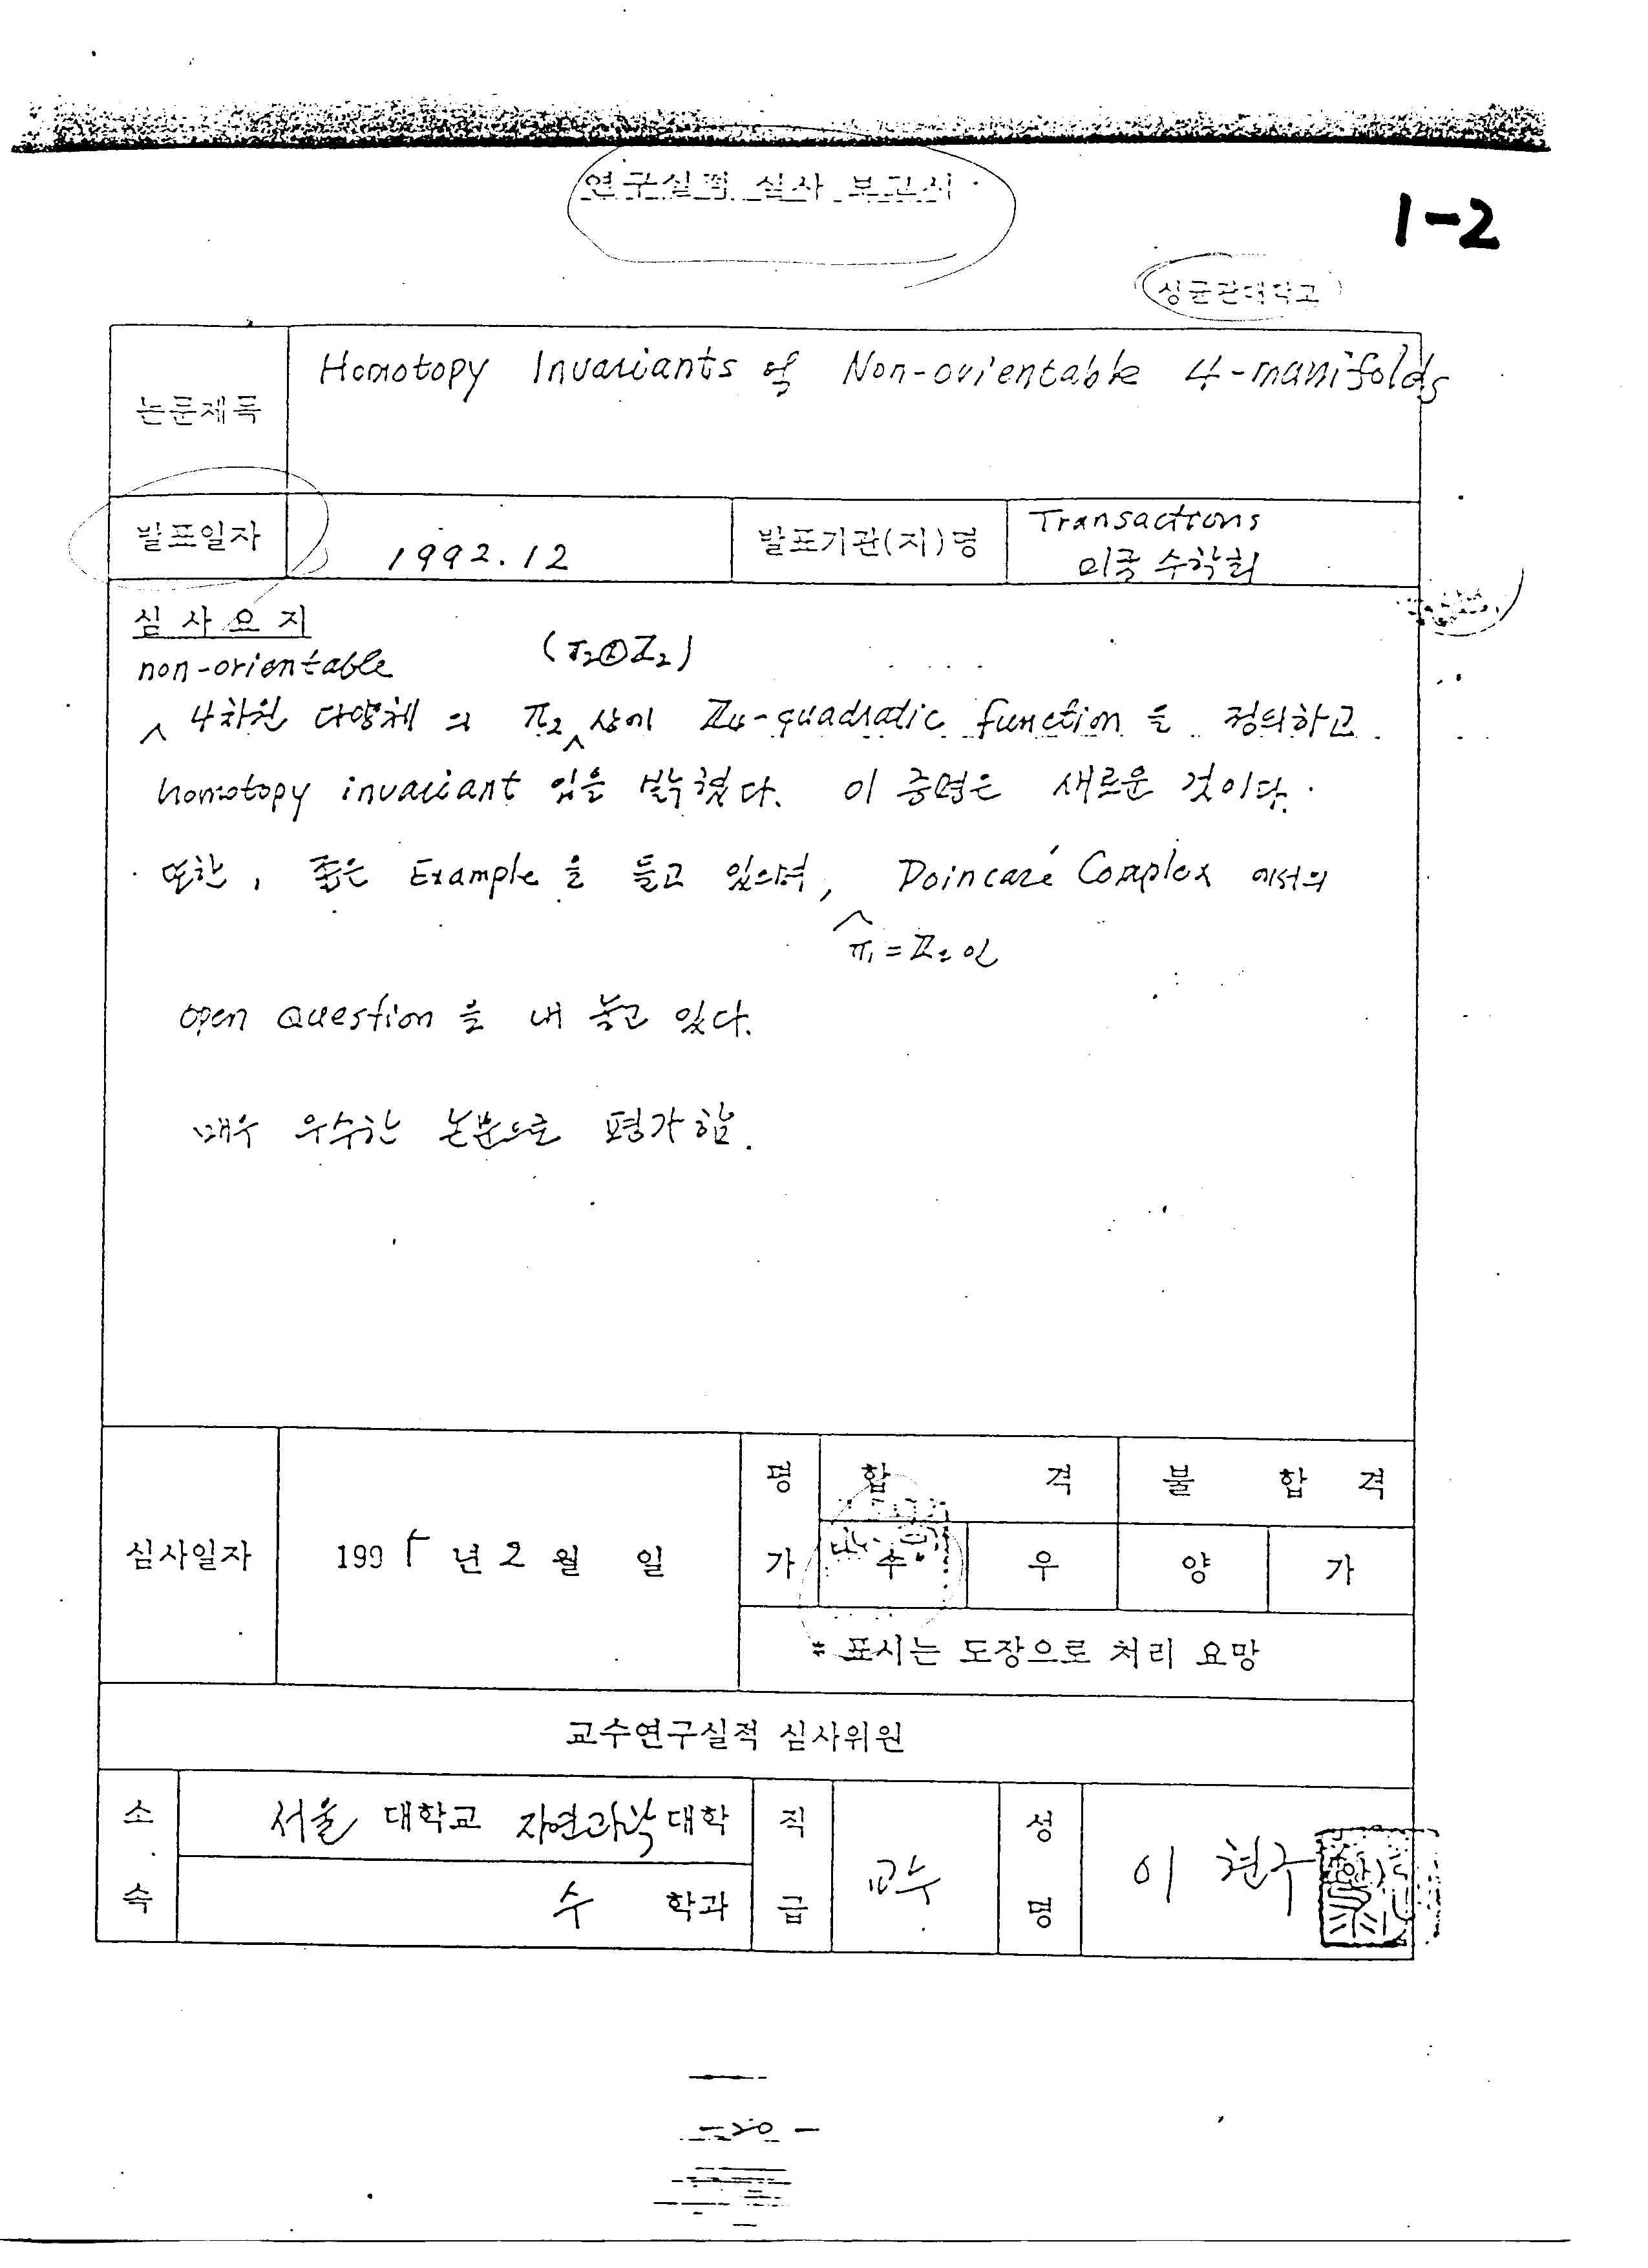 연구실적 심사 보고서
1-2
성균관대학교
논문제목
Homotopy Invariants of Non-orientable 4-manifolds
발표일자
1992.12
발표기관(지)명
Transactions
미국 수학회
심사요지
non-orientable
4차원 다양체의 π₂ 상에 ℤ₄-quadratic function을 정의하고
homotopy invariant 임을 밝혔다. 이 증명은 새로운 것이다.
또한, 좋은 Example을 들고 있으며, Poincaré Complex 에서의
π₁ = ℤ₂인
open Question을 내 놓고 있다.
매우 우수한 논문으로 평가함.
심사일자
1995년 2월 일
평가
합격
불합격
수 우 양 가
* 표시는 도장으로 처리 요망
교수연구실적 심사위원
소속
서울 대학교 자연과학대학
수 학과
직급
교수
성명
이 현구
-20-